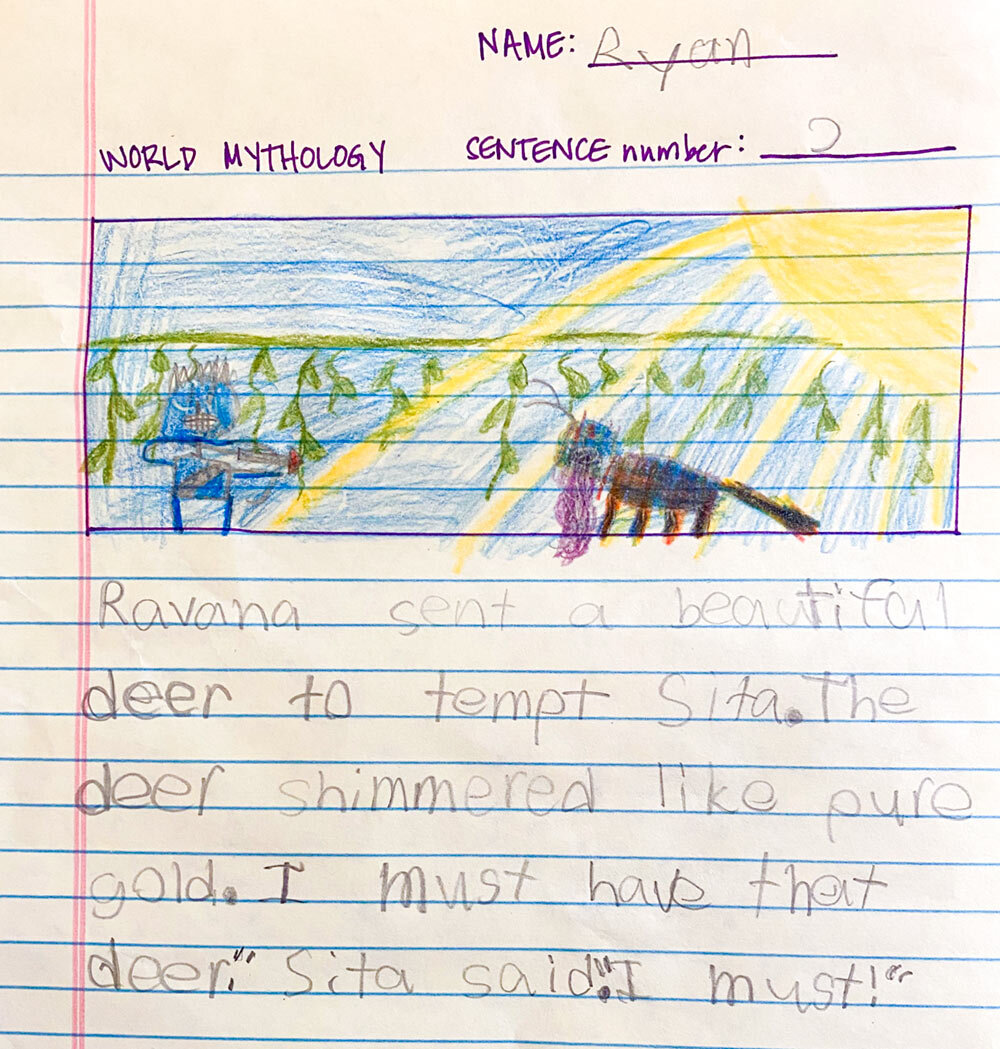 NAME: Ryan
WORLD MYTHOLOGY SENTENCE number:
Ravana sent a beautiful
deer to tempt Sita. The
deer shimmered like pure
gold. I must have that
deer." Sita said. "I must!"